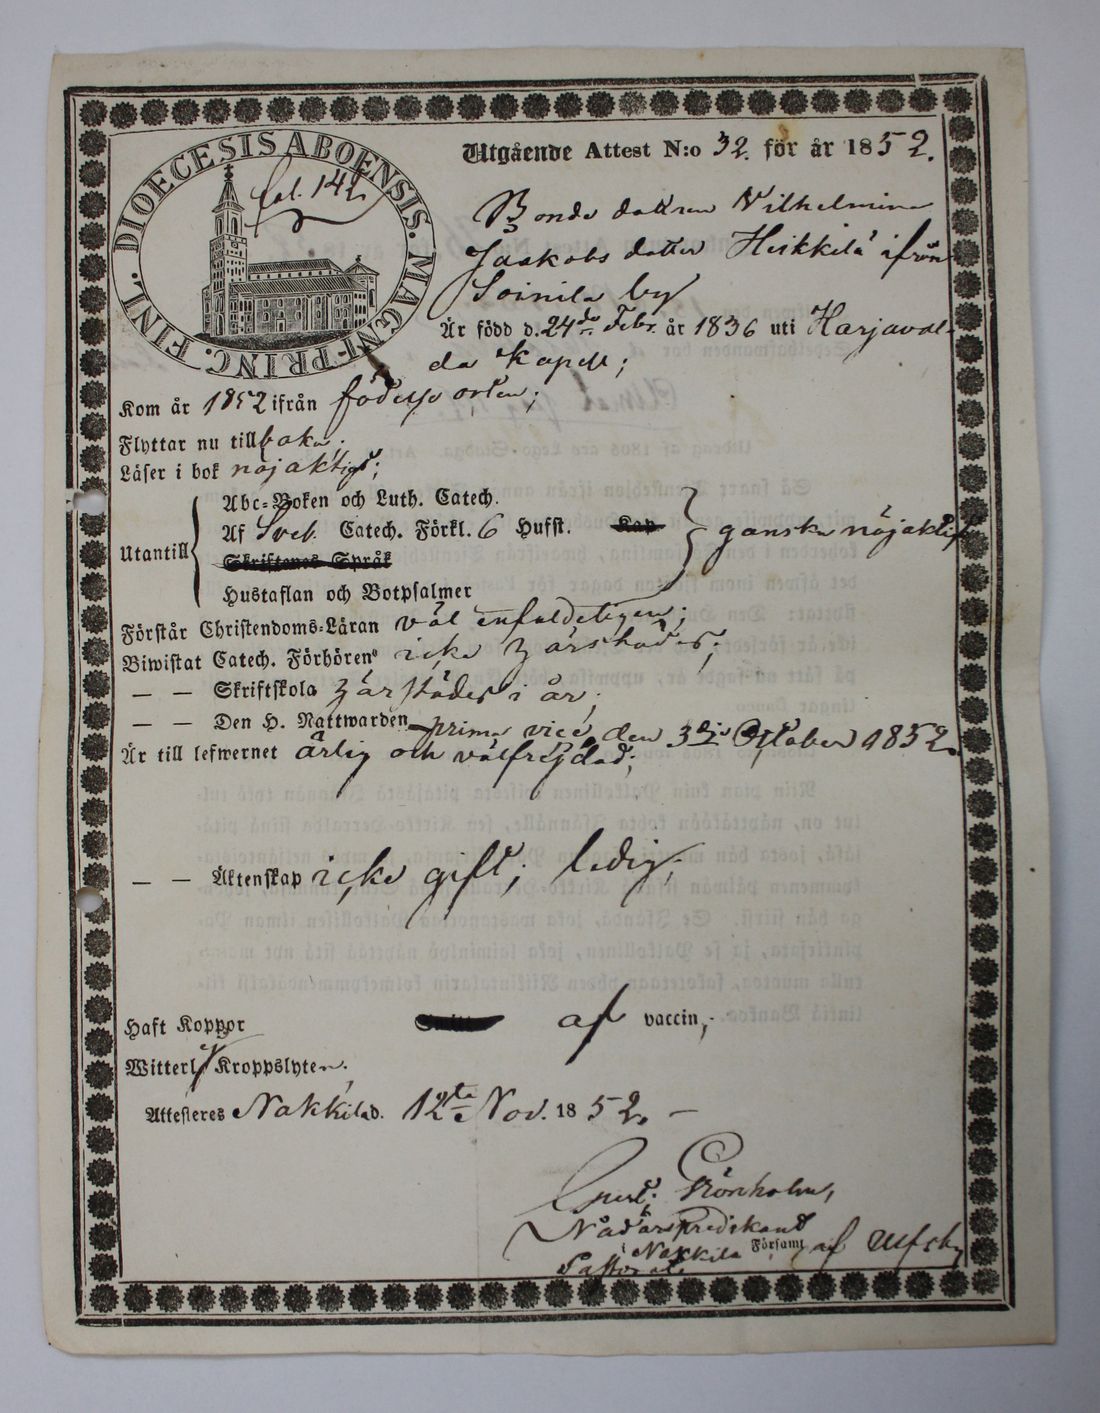 DIOECESIS ABOENSIS. MAGNI-PRINC. FINL.
fol. 142.
Utgående Attest N:o 32. för år 1852.
Bonde dottren Wilhelmina
Jaakobs dotter Heikkilä ifrån
Soinila by
Är född d. 24de Febr. år 1836 uti Harjaval-
da Kapell;
Kom år 1852 ifrån födelse orten;
Flyttar nu tillbaka.
Läser i bok nöjaktigt;
Abc-Boken och Luth. Catech.
Utantill Af Sveb. Catech. Förkl. 6 Hufst. Kap ganska nöjaktigt
Skriftenes Språk
Hustaflan och Botpsalmer
Förstår Christendoms-Läran väl enfaldeligen;
Biwistat Catech. Förhören icke härstädes;
— — Skriftskola härstädes i år;
— — Den H. Nattwarden prima vice, den 3dje October 1852.
Är till lefwernet ärlig och välfrejdad;
— — Äktenskap icke gift; ledig;
Haft Koppor af vaccin;
Witterl. Kroppslyten.
Attesteres Nakkila d. 12te Nov. 1852. —
Gust. Grönholm,
Nådårs Predikant
i Nakkila Församl. af Ulfsby
Pastorat.